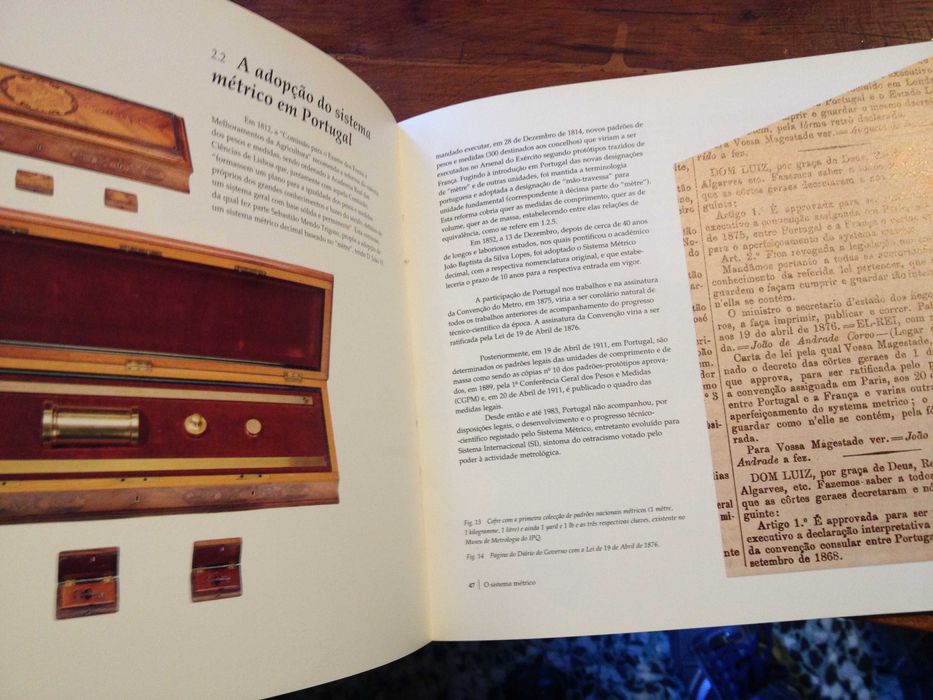 2.2 A adopção do sistema
métrico em Portugal
Em 1812, a "Comissão para o Exame dos Forais e
Melhoramentos da Agricultura" recomenda a reforma
dos pesos e medidas, sendo ordenado à Academia Real das
Ciências de Lisboa que, juntamente com aquela Comissão,
"formassem um plano para a igualdade dos pesos e medidas
próprios dos grandes conhecimentos e luzes do século,
um sistema geral com base sólida e permanente". Esta comissão,
da qual fez parte Sebastião Mendo Trigoso, propôs a adopção de
um sistema métrico decimal baseado no "mètre", tendo D. João VI
mandado executar, em 28 de Dezembro de 1814, novos padrões de
pesos e medidas (300 destinados aos concelhos) que viriam a ser
executados no Arsenal do Exército segundo protótipos trazidos de
França. Fugindo à introdução em Portugal das novas designações
de "mètre" e de outras unidades, foi mantida a terminologia
portuguesa e adoptada a designação de "mão-travessa" para
unidade fundamental (correspondente à décima parte do "mètre").
Esta reforma cobria quer as medidas de comprimento, quer as de
volume, quer as de massa, estabelecendo entre elas relações de
equivalência, como se refere em 1.2.5.
Em 1852, a 13 de Dezembro, depois de cerca de 40 anos
de longos e laboriosos estudos, nos quais pontificou o académico
João Baptista da Silva Lopes, foi adoptado o Sistema Métrico
decimal, com a respectiva nomenclatura original, e que estabe-
leceria o prazo de 10 anos para a respectiva entrada em vigor.
A participação de Portugal nos trabalhos e na assinatura
da Convenção do Metro, em 1875, viria a ser corolário natural de
todos os trabalhos anteriores de acompanhamento do progresso
técnico-científico da época. A assinatura da Convenção viria a ser
ratificada pela Lei de 19 de Abril de 1876.
Posteriormente, em 19 de Abril de 1911, em Portugal, são
determinados os padrões legais das unidades de comprimento e de
massa como sendo as cópias nº 10 dos padrões-protótipos aprova-
dos, em 1889, pela 1ª Conferência Geral dos Pesos e Medidas
(CGPM) e, em 20 de Abril de 1911, é publicado o quadro das
medidas legais.
Desde então e até 1983, Portugal não acompanhou, por
disposições legais, o desenvolvimento e o progresso técnico-
-científico registado pelo Sistema Métrico, entretanto evoluído para
Sistema Internacional (SI), sintoma do ostracismo votado pelo
poder à actividade metrológica.
Fig. 13 Cofre com a primeira colecção de padrões nacionais métricos (1 mètre,
1 kilogramme, 1 litro) e ainda 1 yard e 1 lb e as três respectivas chaves, existente no
Museu de Metrologia do IPQ.
Fig. 14 Página do Diário do Governo com a Lei de 19 de Abril de 1876.
47 | O sistema métrico
executivo
em Londr
Portugal e o Estado L
e guardar o mesmo decre
pela fórma retró declarada.
Para Vossa Magestade ver.
a fez.
DOM LUIZ, por graça de Deus,
Algarves, etc. Fazemos saber a
que as côrtes geraes decretaram e nós
guinte:
Artigo 1.º É approvada para ser
executivo a convenção assignada
de 1875, entre Portugal e a França e
para o aperfeiçoamento do systema
Art. 2.º Fica revogada a legislação
Mandâmos portanto a todas as
conhecimento da referida lei pertencer, que
guardem e façam cumprir e guardar tão inte
n'ella se contém.
O ministro e secretario d'estado dos nego
ros, a faça imprimir, publicar e correr.
aos 19 de abril de 1876.=EL-REI, com r
da.=João de Andrade Corvo=(Logar
Carta de lei pela qual Vossa Magestade,
nado o decreto das côrtes geraes de 1 d
que approva, para ser ratificada pelo
a convenção assignada em Paris, aos 20
entre Portugal e a França e varias outra
aperfeiçoamento do systema metrico; o
guardar como n'elle se contém, pela fó
rada.
Para Vossa Magestade ver.=João
Andrade a fez.
DOM LUIZ, por graça de Deus, Re
Algarves, etc. Fazemos saber a todo
que as côrtes geraes decretaram e nó
guinte:
Artigo 1.º É approvada para ser
executivo a declaração interpretativa
da convenção consular entre Portuga
setembro de 1868.